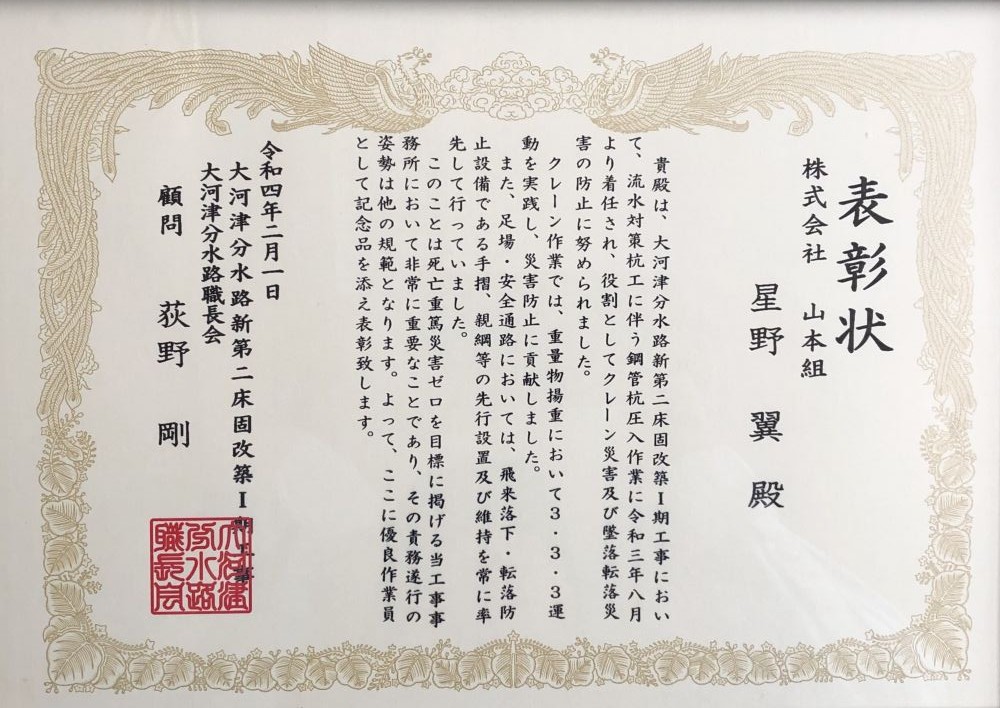 表彰状
株式会社 山本組
星野 翼 殿
貴殿は、大河津分水路新第二床固改築Ⅰ期工事におい
て、流水対策杭工に伴う鋼管杭圧入作業に令和三年八月
より着任され、役割としてクレーン災害及び墜落転落災
害の防止に努められました。
クレーン作業では、重量物揚重において3・3・3運
動を実践し、災害防止に貢献しました。
また、足場・安全通路においては、飛来落下・転落防
止設備である手摺、親綱等の先行設置及び維持を常に率
先して行っていました。
このことは死亡重篤災害ゼロを目標に掲げる当工事事
務所において非常に重要なことであり、その責務遂行の
姿勢は他の規範となります。よって、ここに優良作業員
として記念品を添え表彰致します。
令和四年二月一日
大河津分水路新第二床固改築Ⅰ期工事
大河津分水路職長会
顧問 荻野 剛
大河津
分水路
職長会